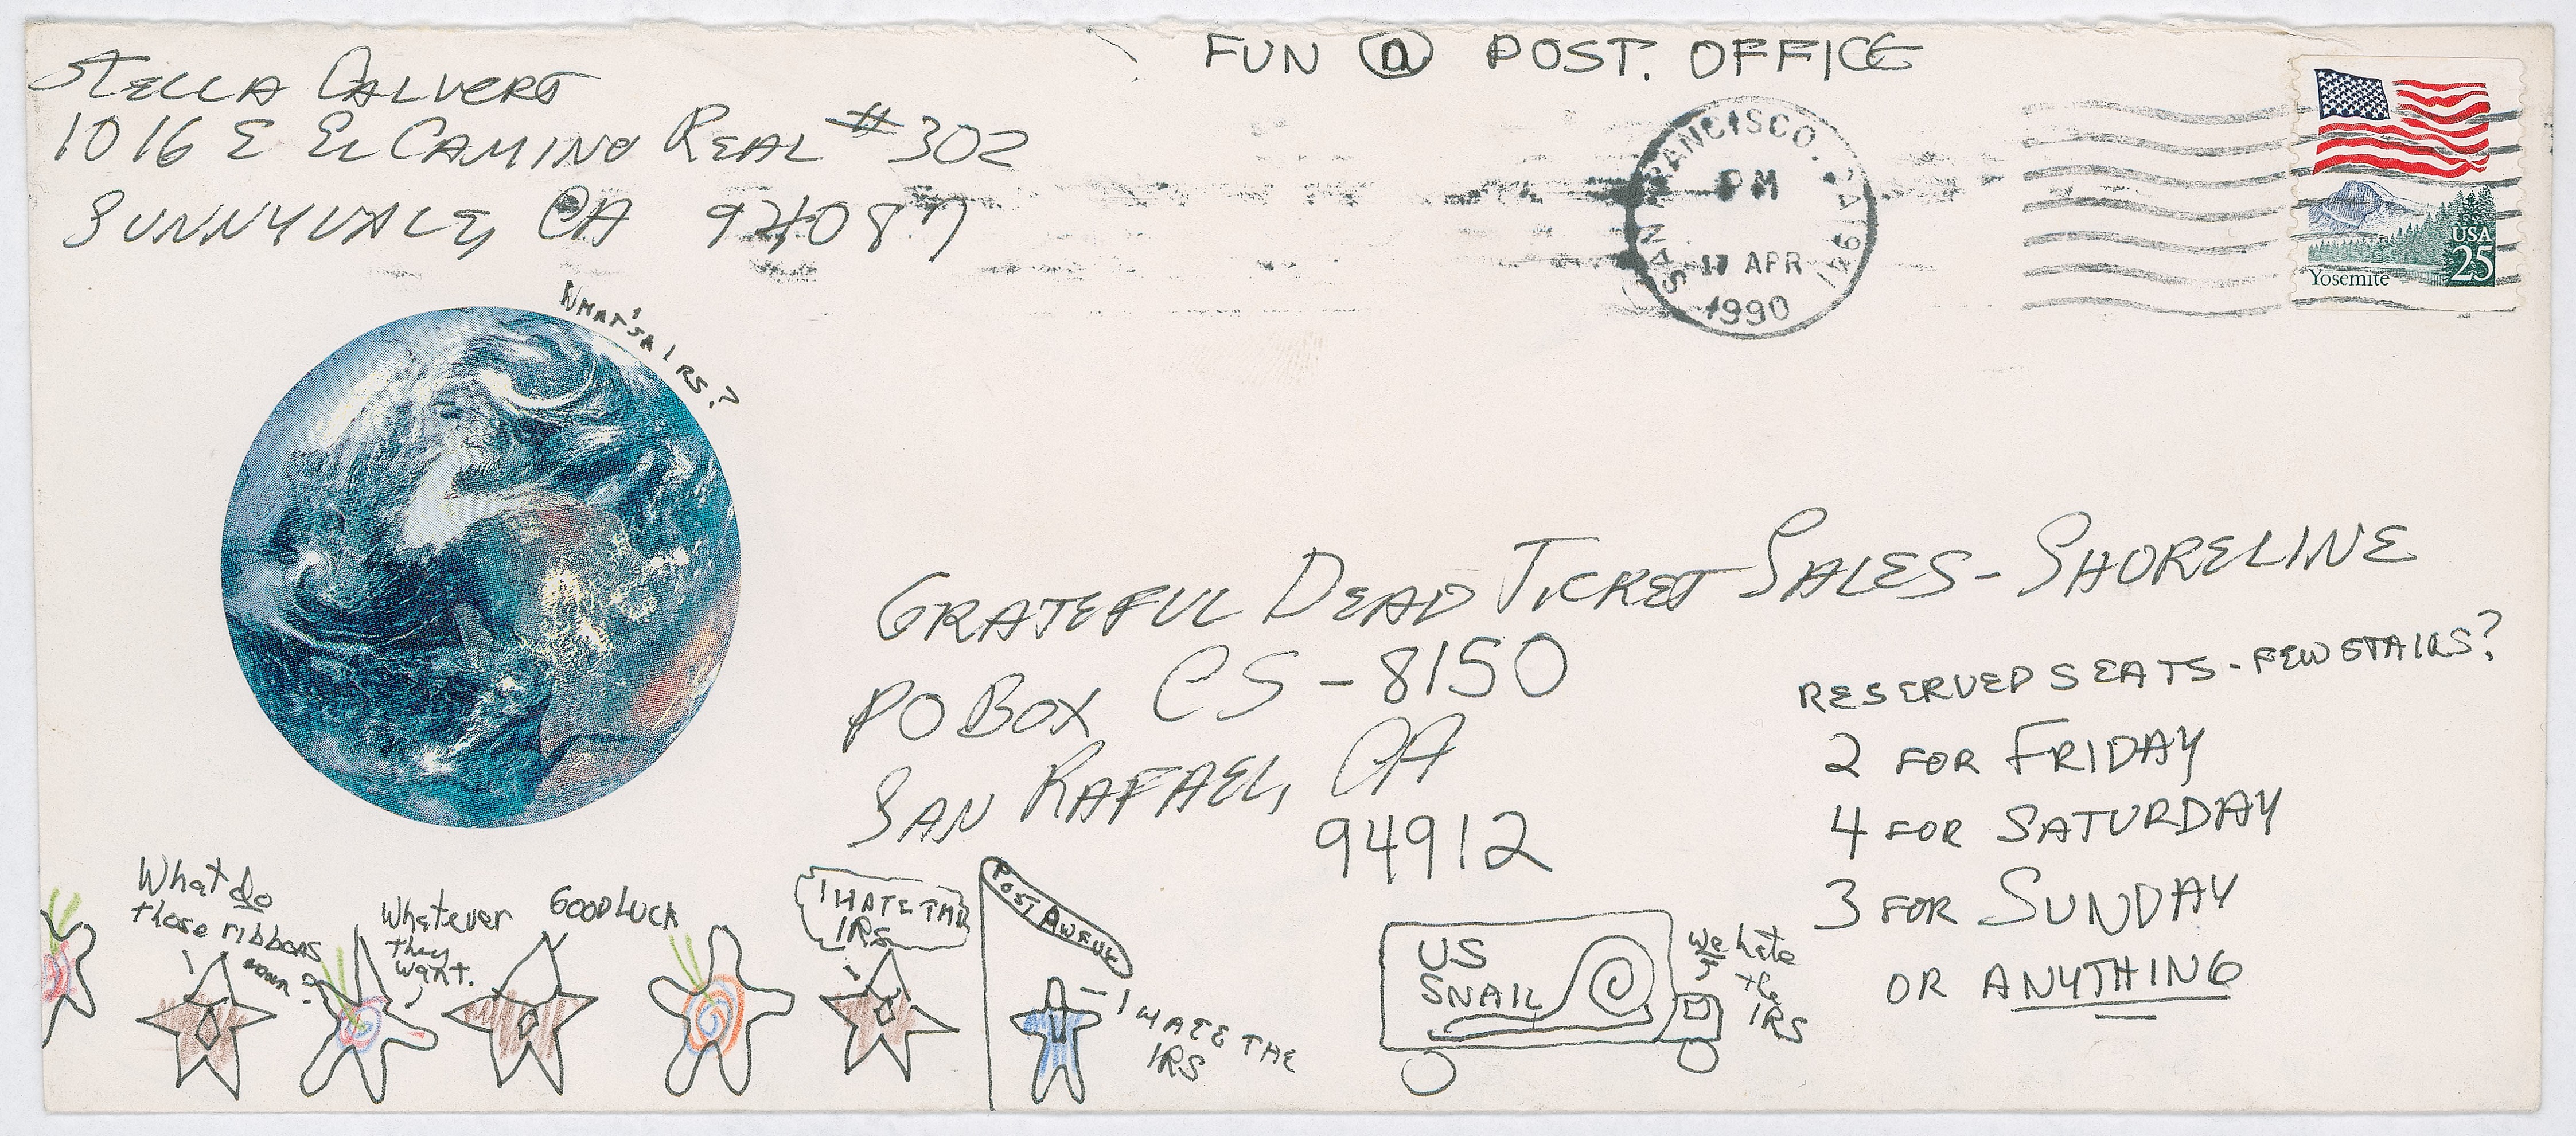 FUN @ POST. OFFICE
STELLA CALVERT
1016 E EL CAMINO REAL #302
SUNNYVALE, CA 94087
SAN FRANCISCO, CA 941
PM
17 APR
1990
USA
25
Yosemite
WHAT'S A IRS?
GRATEFUL DEAD TICKET SALES - SHORELINE
PO BOX CS - 8150
SAN RAFAEL, CA
94912
RESERVED SEATS - FEW STAIRS?
2 FOR FRIDAY
4 FOR SATURDAY
3 FOR SUNDAY
OR ANYTHING
What do
those ribbons
mean?
Whatever
they
want.
GOOD LUCK
I HATE THE
IRS
POST AWFUL
I HATE THE
IRS
US
SNAIL
we hate
the
IRS